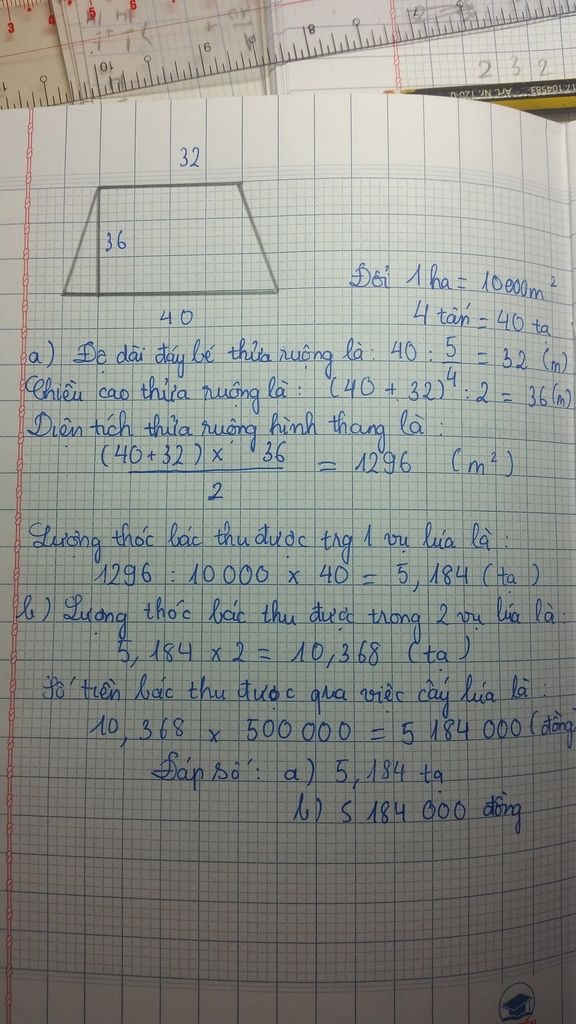 3
4
5
8
9
10
2 3 2
Art. Nr. 120
17 104583
32
36
40
Đổi 1 ha = 10000m²
4 tấn = 40 tạ
a) Độ dài đáy bé thửa ruộng là: 40 : 5/4 = 32 (m)
Chiều cao thửa ruộng là: (40 + 32) : 2 = 36 (m)
Diện tích thửa ruộng hình thang là:
(40+32) × 36 / 2 = 1296 (m²)
Lượng thóc bác thu được trg 1 vụ lúa là:
1296 : 10 000 × 40 = 5,184 (tạ)
b) Lượng thóc bác thu được trong 2 vụ lúa là:
5,184 × 2 = 10,368 (tạ)
Số tiền bác thu được qua việc cấy lúa là:
10,368 × 500 000 = 5 184 000 (đồng)
Đáp số: a) 5,184 tạ
b) 5 184 000 đồng